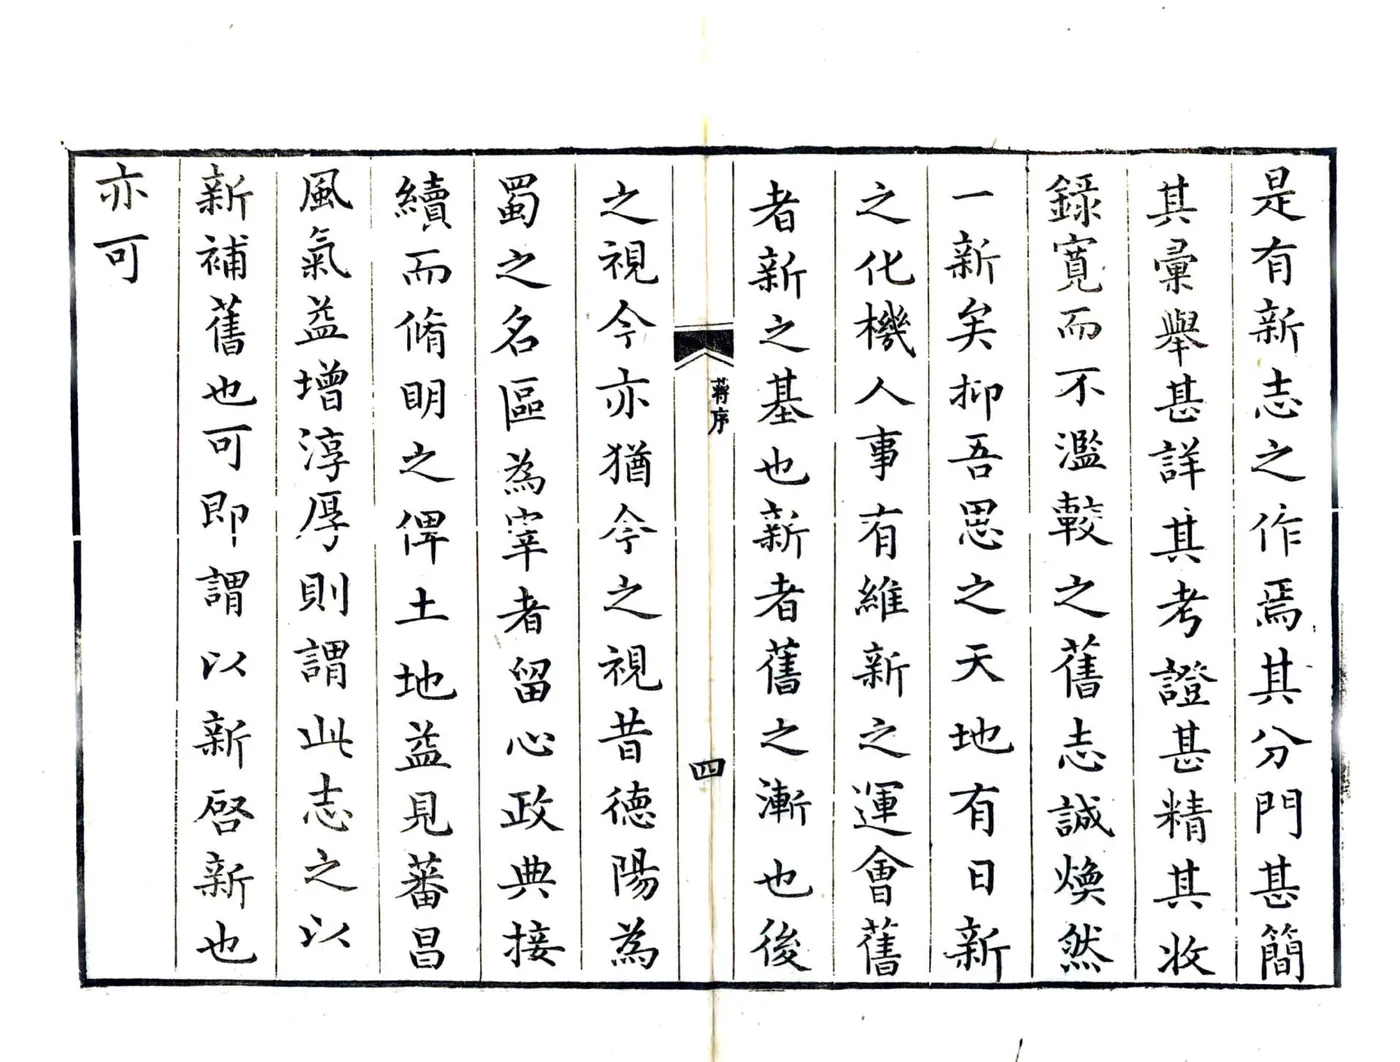 是有新志之作焉其分門甚簡
其彙舉甚詳其考證甚精其收
録寬而不濫較之舊志誠煥然
一新矣抑吾思之天地有日新
之化機人事有維新之運會舊
者新之基也新者舊之漸也後
蔣序
四
之視今亦猶今之視昔德陽為
蜀之名區為宰者留心政典接
續而脩明之俾土地益見蕃昌
風氣益增淳厚則謂此志之以
新補舊也可即謂以新啓新也
亦可